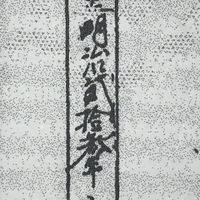 明治貳拾参年